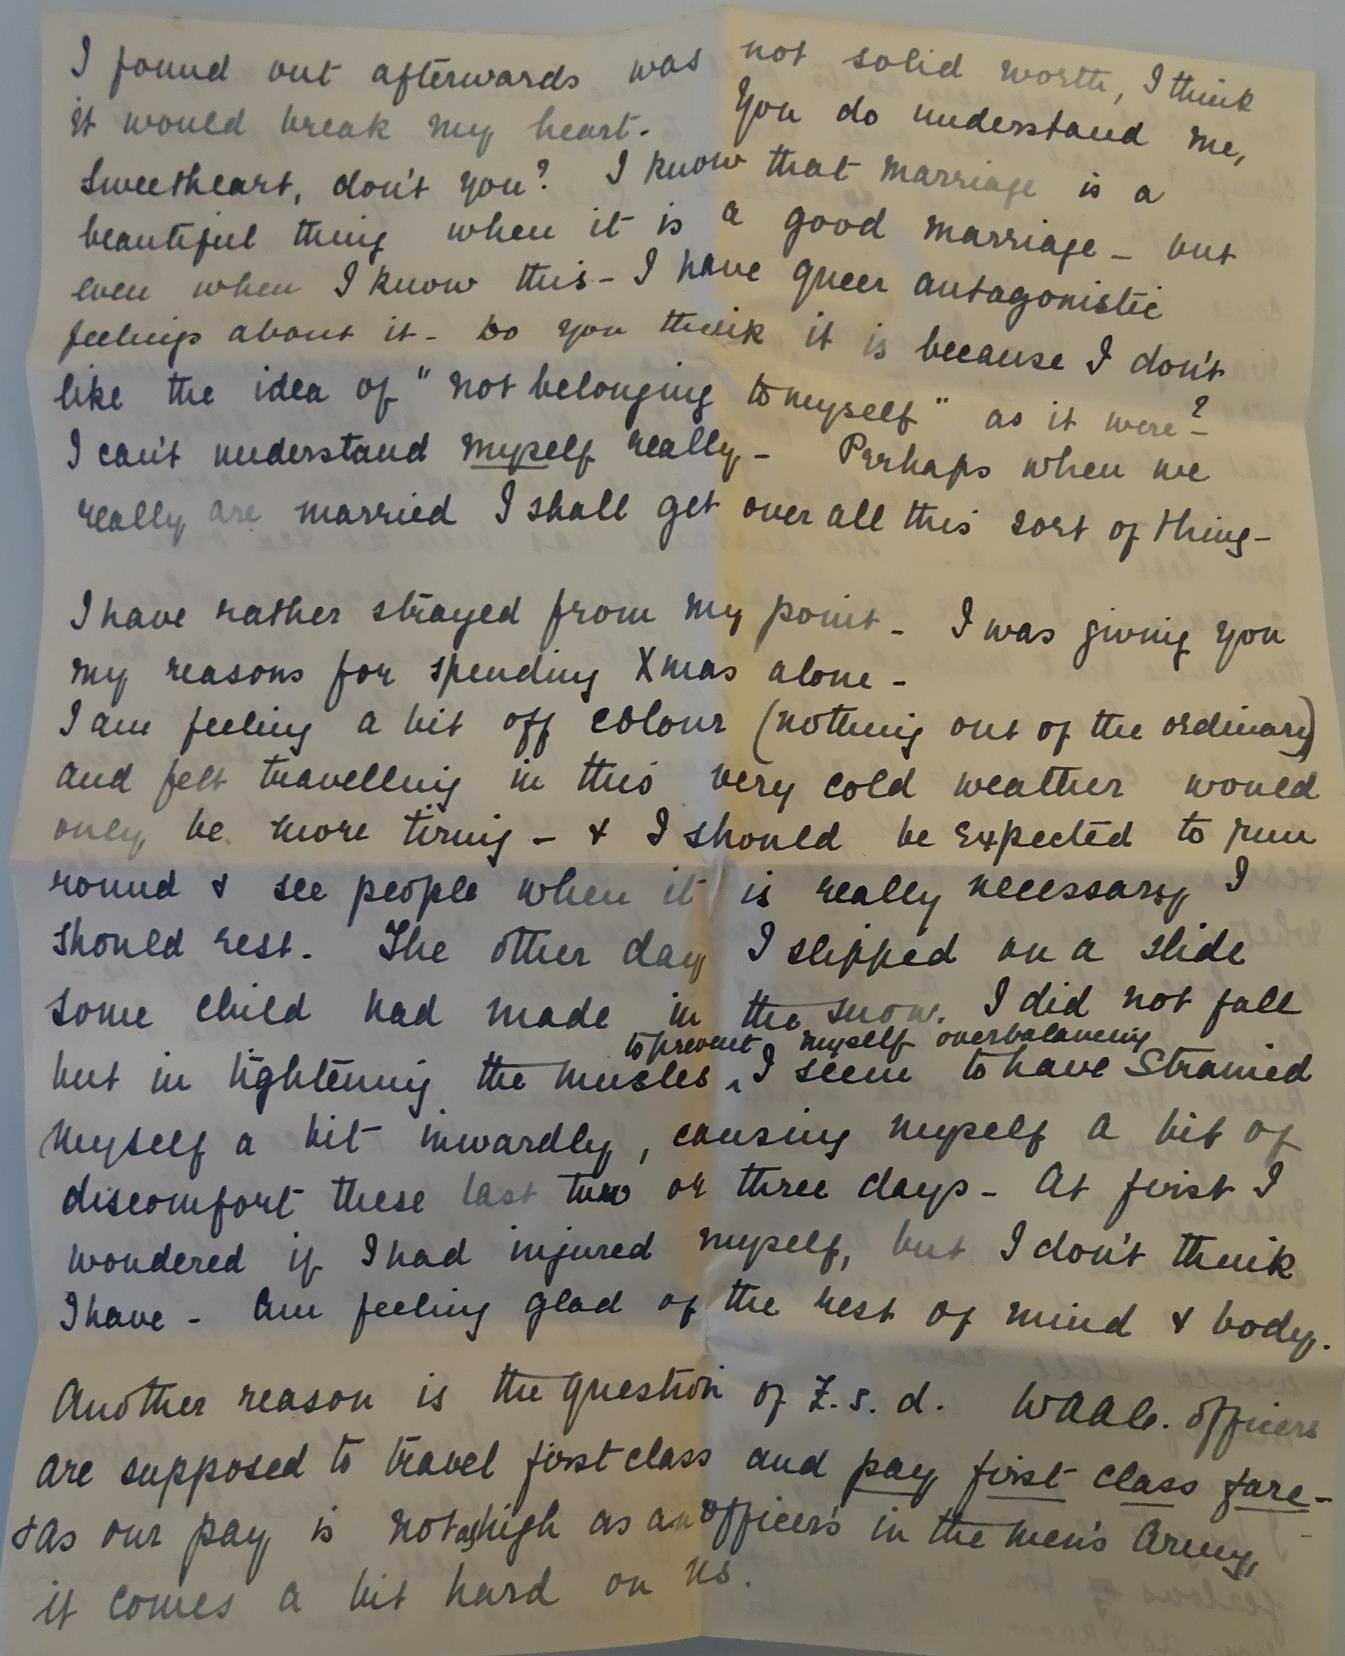 I found out afterwards was not solid worth, I think
it would break my heart. You do understand me,
Sweetheart, don't you? I know that marriage is a
beautiful thing when it is a good marriage - but
even when I know this - I have queer antagonistic
feelings about it - Do you think it is because I don't
like the idea of "not belonging to myself" as it were?
I can't understand myself really - Perhaps when we
really are married I shall get over all this sort of thing -
I have rather strayed from my point - I was giving you
my reasons for spending Xmas alone -
I am feeling a bit off colour (nothing out of the ordinary)
and felt travelling in this very cold weather would
only be more tiring - & I should be expected to run
round & see people when it is really necessary I
should rest. The other day I slipped on a slide
some child had made in the snow. I did not fall
to prevent myself overbalancing
but in tightening the muscles ^ I seem to have strained
myself a bit inwardly, causing myself a bit of
discomfort these last two or three days - At first I
wondered if I had injured myself, but I don't think
I have - Am feeling glad of the rest of mind & body.
Another reason is the question of £.s.d. WAAC. officers
are supposed to travel first class and pay first class fare -
& as our pay is not as high as an officer's in the men's Army,
it comes a bit hard on us.